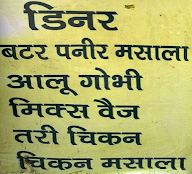 डिनर
बटर पनीर मसाला
आलू गोभी
मिक्स वैज
तरी चिकन
चिकन मसाला